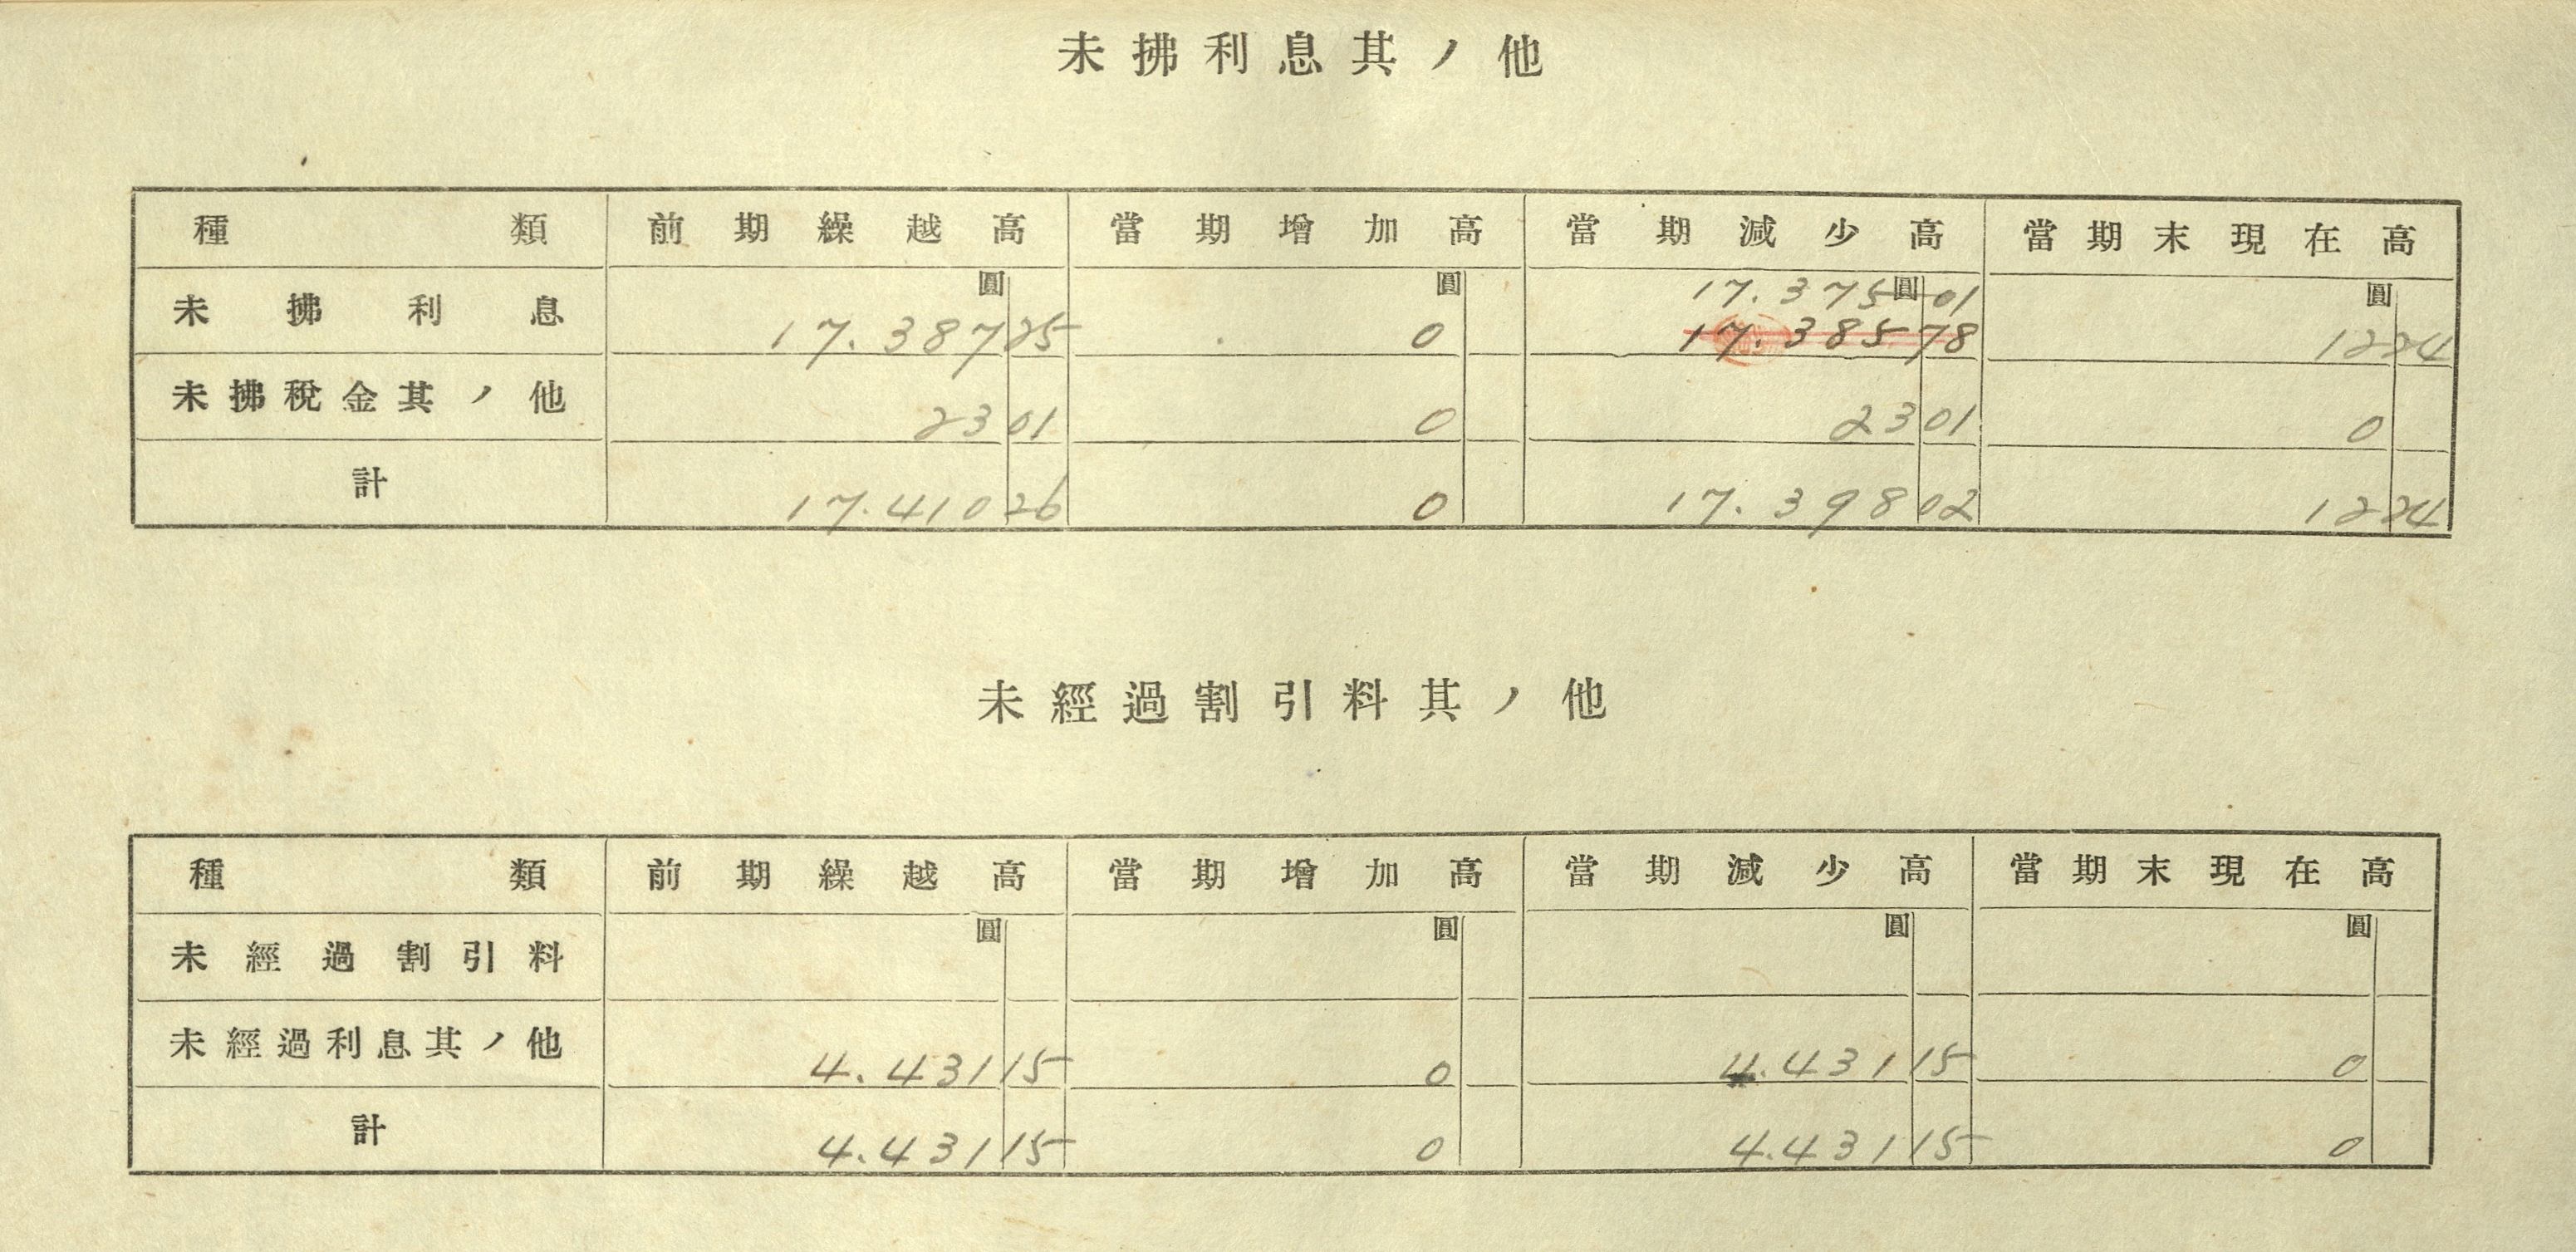 未拂利息其ノ他
種類 前期繰越高 當期增加高 當期減少高 當期末現在高
圓 圓 17.375圓01 圓
未拂利息 17.38725 0 17.38578 1224
未拂稅金其ノ他 2301 0 2301 0
計 17.41026 0 17.39802 1224
未經過割引料其ノ他
種類 前期繰越高 當期增加高 當期減少高 當期末現在高
圓 圓 圓 圓
未經過割引料
未經過利息其ノ他 4.43115 0 4.43115 0
計 4.43115 0 4.43115 0